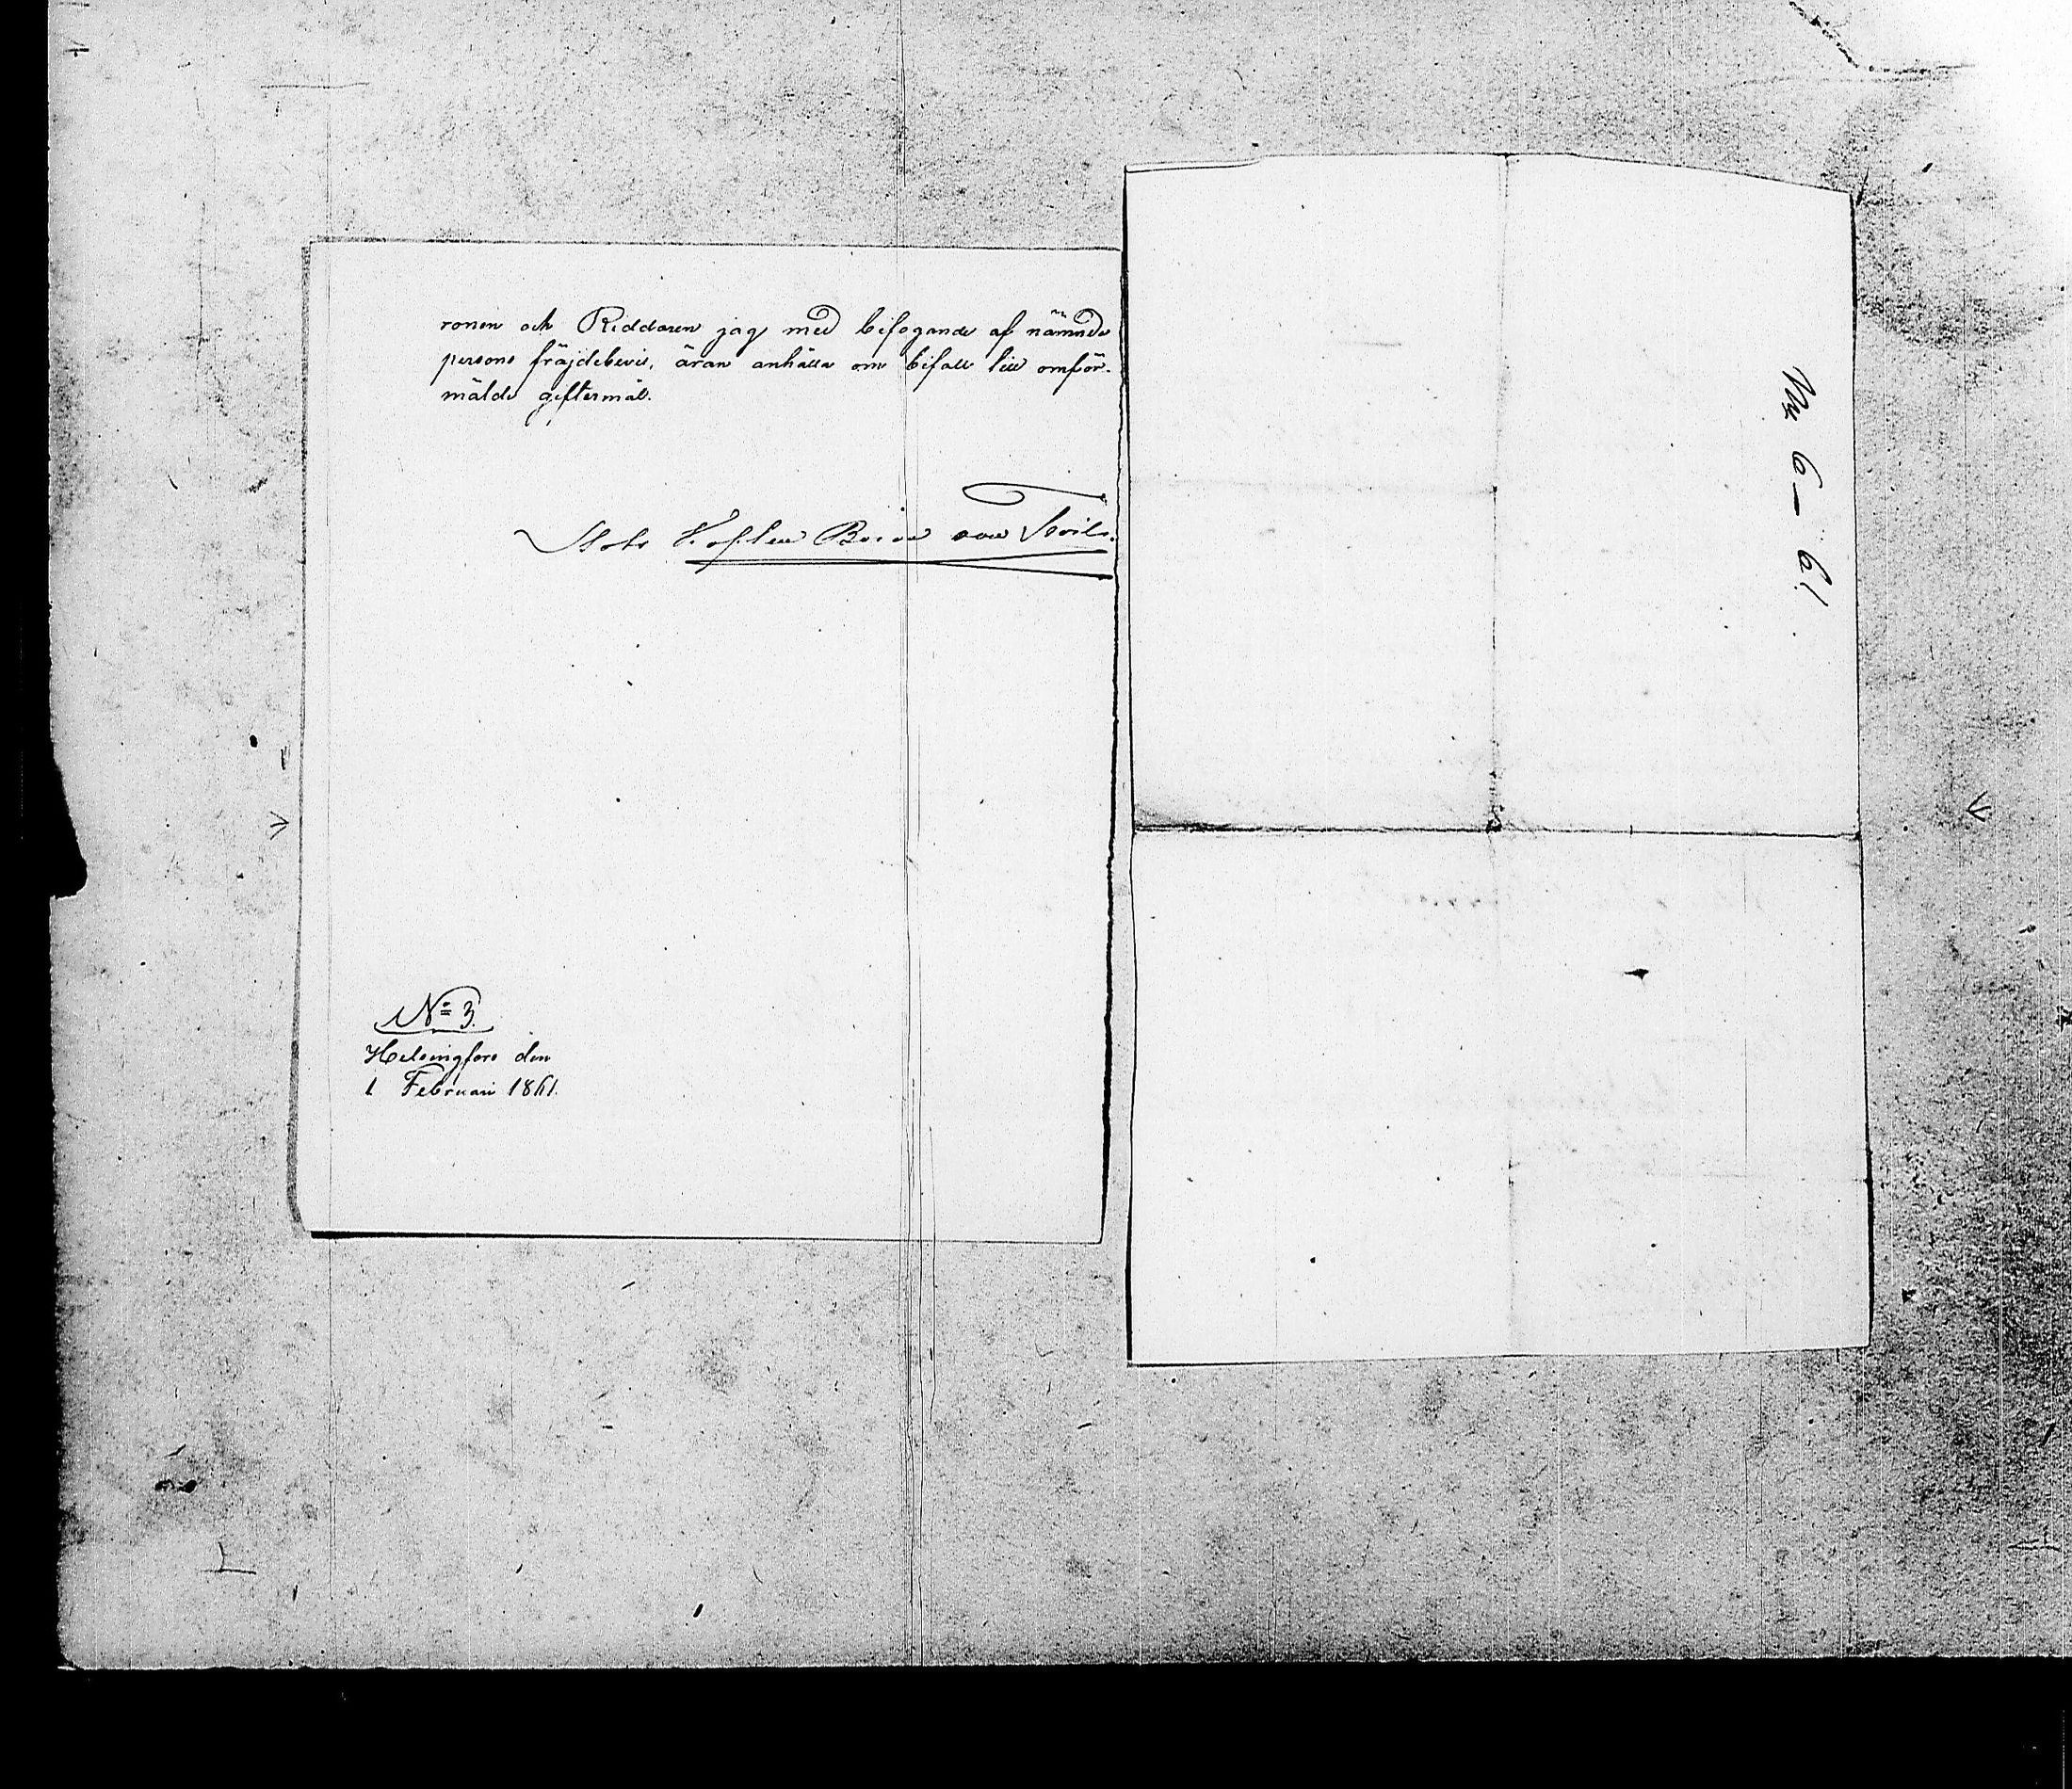 ronen och Riddaren jag med bifogande af nämnde
persons fräjdebevis, äran anhålla om bifall till omför-
mälde giftermål.
von
No 3.
Helsingfors den
1 Februari 1861.
No 6 – 61.